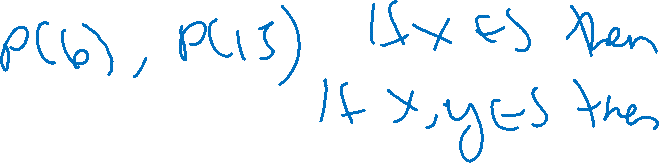 P(6), P(15) If x ∈ S then
If x, y ∈ S then